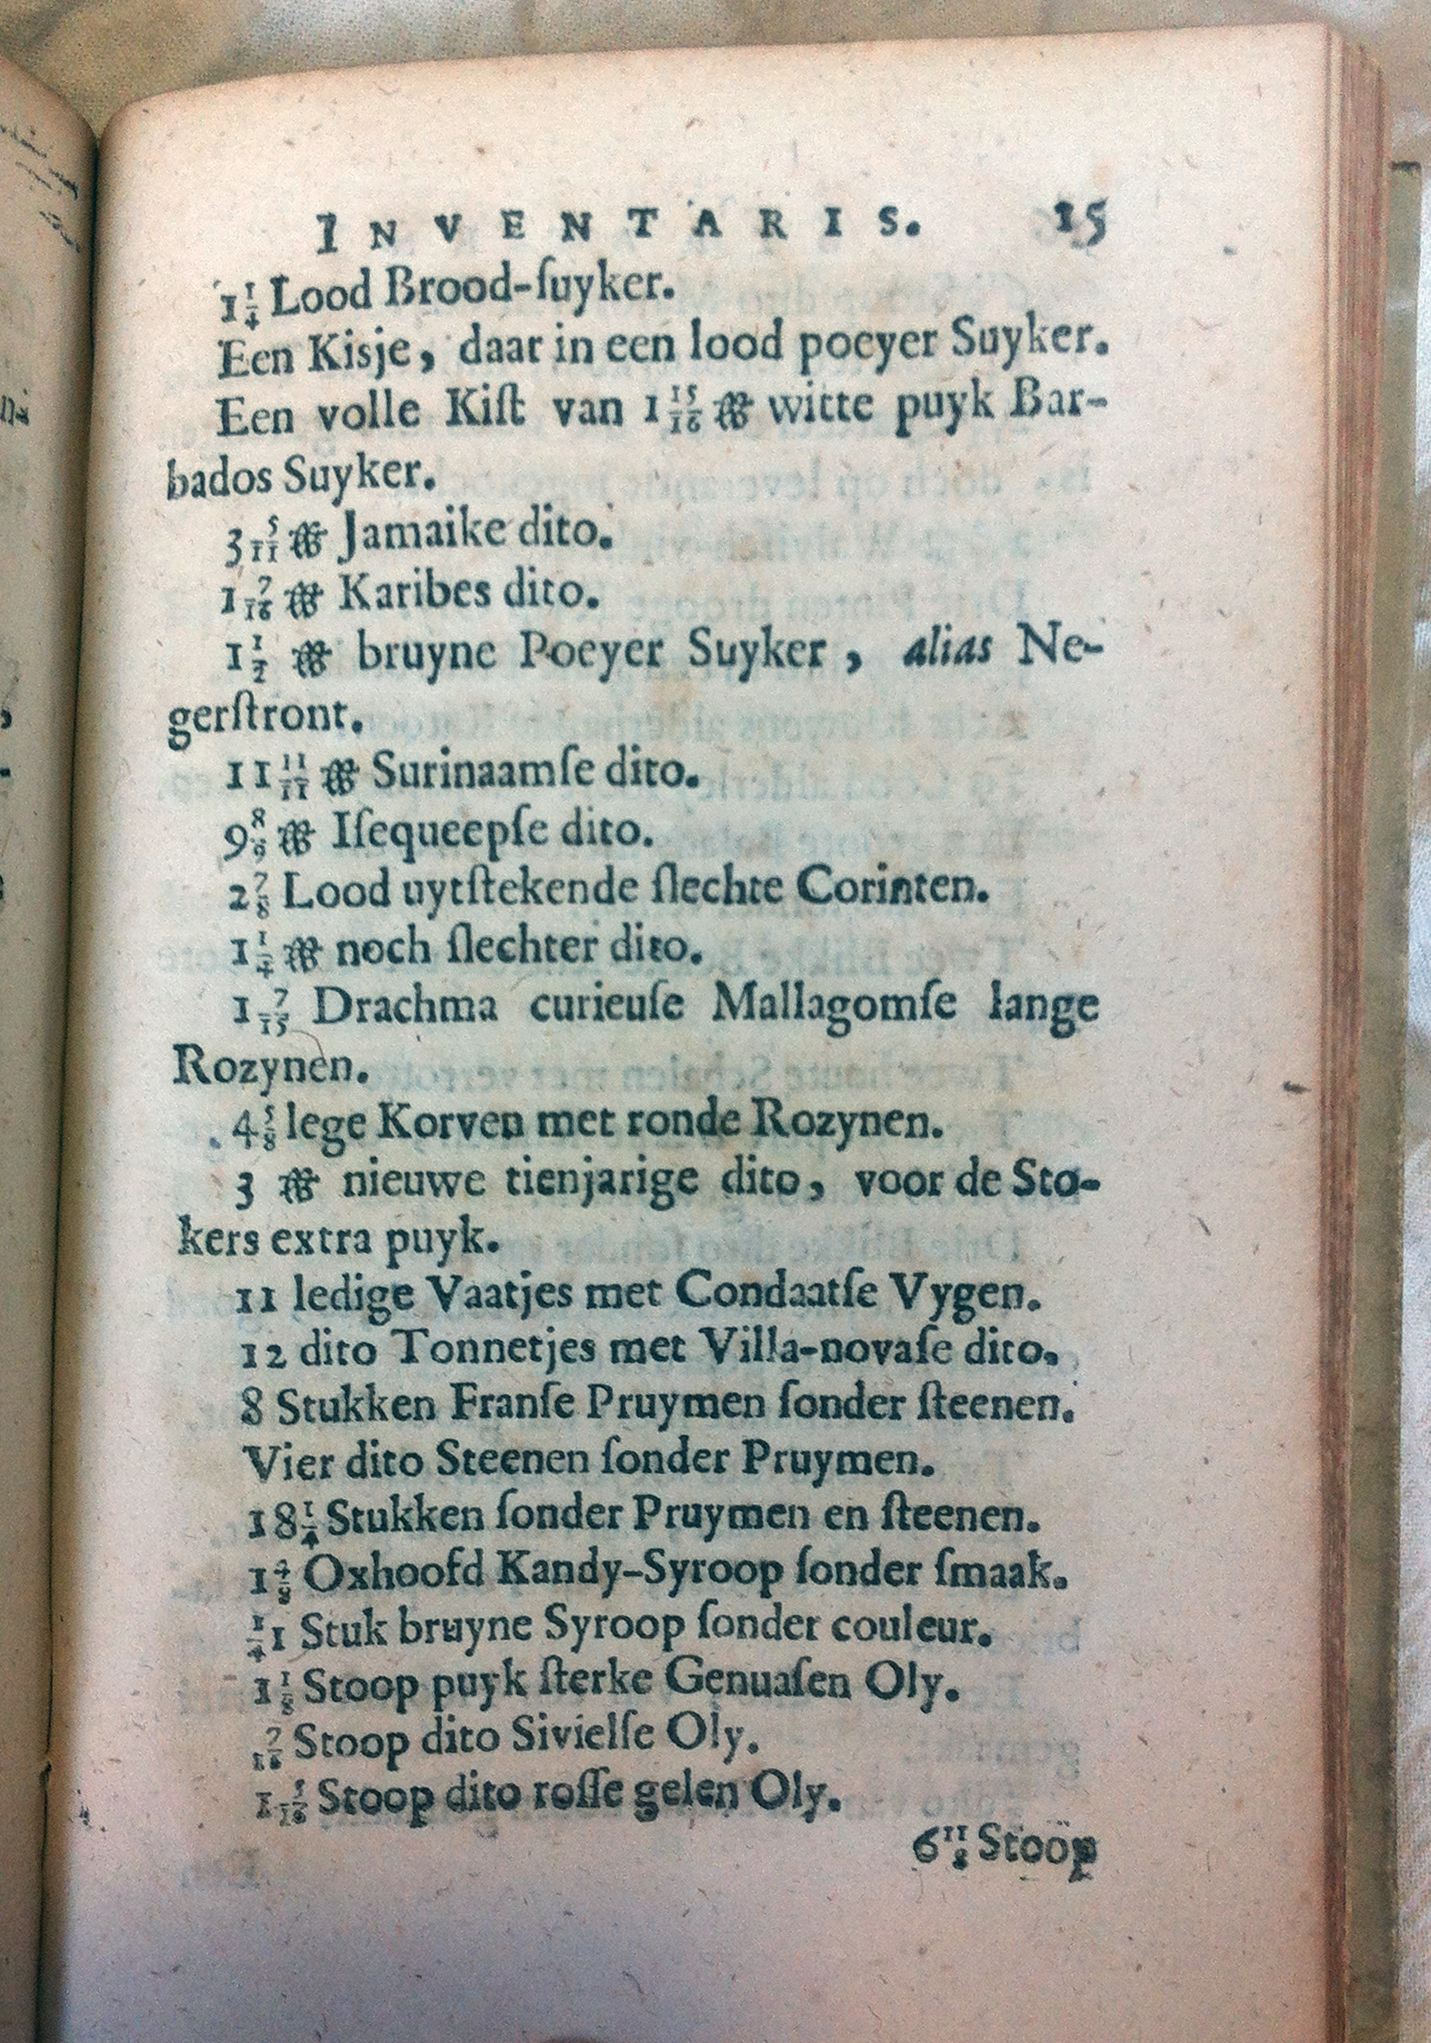 INVENTARIS. 15
1 1/4 Lood Brood-ſuyker.
Een Kisje, daar in een lood poeyer Suyker.
Een volle Kiſt van 1 15/16 ℔ witte puyk Bar-
bados Suyker.
3 5/11 ℔ Jamaike dito.
1 7/16 ℔ Karibes dito.
1 1/2 ℔ bruyne Poeyer Suyker, alias Ne-
gerſtront.
11 11/11 ℔ Surinaamſe dito.
9 8/9 ℔ Iſequeepſe dito.
2 7/8 Lood uytſtekende ſlechte Corinten.
1 1/4 ℔ noch ſlechter dito.
1 7/15 Drachma curieuſe Mallagomſe lange
Rozynen.
4 5/8 lege Korven met ronde Rozynen.
3 ℔ nieuwe tienjarige dito, voor de Sto-
kers extra puyk.
11 ledige Vaatjes met Condaatſe Vygen.
12 dito Tonnetjes met Villa-novaſe dito.
8 Stukken Franſe Pruymen ſonder ſteenen.
Vier dito Steenen ſonder Pruymen.
18 1/4 Stukken ſonder Pruymen en ſteenen.
1 4/8 Oxhoofd Kandy-Syroop ſonder ſmaak.
1/4 1 Stuk bruyne Syroop ſonder couleur.
1 1/8 Stoop puyk ſterke Genuaſen Oly.
7/16 Stoop dito Sivielſe Oly.
1 5/16 Stoop dito roſſe gelen Oly.
6 11/8 Stoop